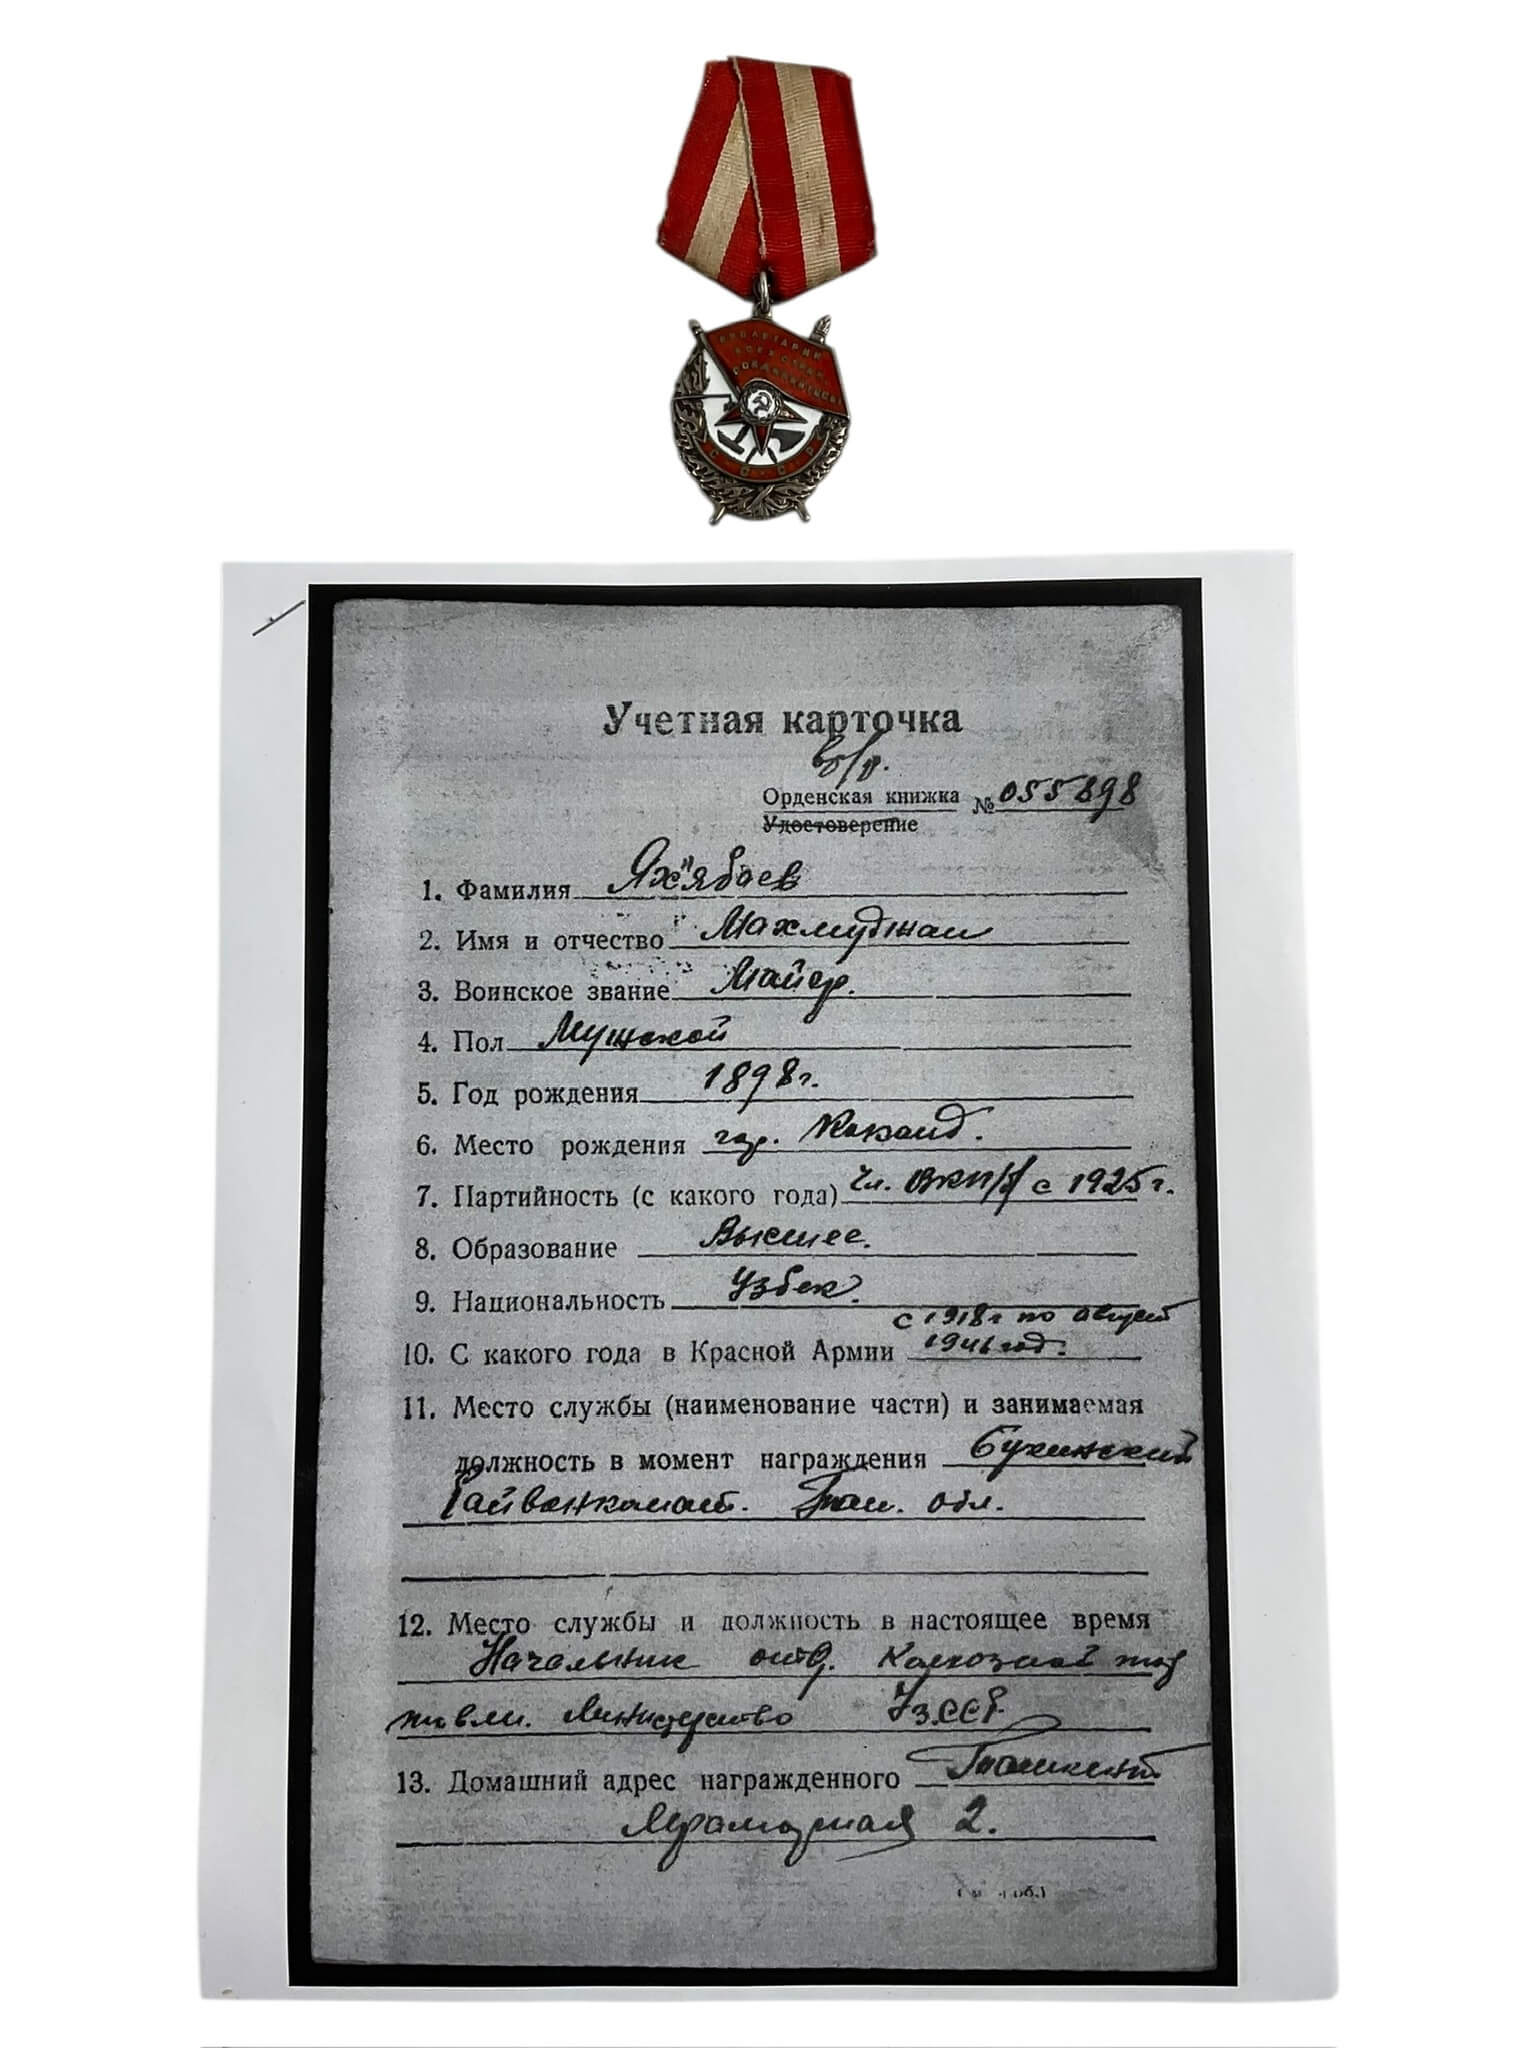 ПРОЛЕТАРИИ
ВСЕХ СТРАН
СОЕДИНЯЙТЕСЬ!
СССР
Учетная карточка
б/п.
Орденская книжка № 055898
Удостоверение
1. Фамилия Ях"ябаев
2. Имя и отчество Махмуджан
3. Воинское звание Майор.
4. Пол Мужской
5. Год рождения 1898 г.
6. Место рождения гор. Коканд.
7. Партийность (с какого года) Чл. ВКП/б/ с 1925 г.
8. Образование Высшее.
9. Национальность Узбек.
с 1918 г по август
10. С какого года в Красной Армии 1946 год.
11. Место службы (наименование части) и занимаемая
должность в момент награждения
Райвоенкомат. Таш. обл.
12. Место службы и должность в настоящее время
Начальник отд. Колхозной тор
говли. Министерство УзССР
13. Домашний адрес награжденного Ташкент
Мраморная 2.